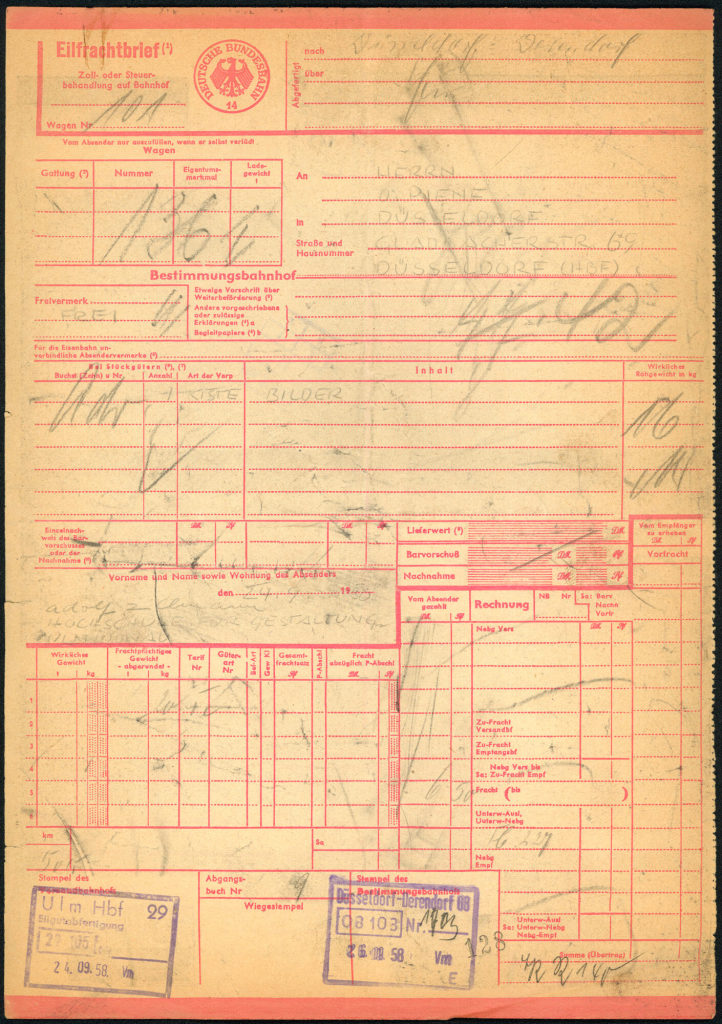 Eilfrachtbrief (¹)
Zoll- oder Steuer-
behandlung auf Bahnhof
Wagen Nr. 101
DEUTSCHE BUNDESBAHN
14
Abgefertigt
nach Düsseldorf Derendorf
über
Vom Absender nur auszufüllen, wenn er selbst verlädt
Wagen
Gattung (²) Nummer Eigentums-
merkmal Lade-
gewicht
t
136
An HERRN
O. PIENE
in DÜSSELDORF
Straße und
Hausnummer GLADBACHERSTR. 69
Bestimmungsbahnhof DÜSSELDORF (HBF)
Freivermerk
FREI
Etwaige Vorschrift über
Weiterbeförderung (³)
Andere vorgeschriebene
oder zulässige
Erklärungen (⁴) a
Begleitpapiere (⁴) b
Für die Eisenbahn un-
verbindliche Absendervermerke (⁵)
Bei Stückgütern (⁶), (⁷)
Buchst. (Zchn) u Nr. Anzahl Art der Verp Inhalt Wirkliches
Rohgewicht in kg
Adr 1 KISTE BILDER 16
Einzelnach-
weis des Bar-
vorschusses
oder der
Nachnahme (⁸)
DM Pf DM Pf
Lieferwert (⁹) DM
Barvorschuß DM Pf
Nachnahme DM Pf
Vom Empfänger
zu erheben
DM Pf
Vorfracht
Vorname und Name sowie Wohnung des Absenders
den 19
HOCHSCHULE FÜR GESTALTUNG
ULM DONAU
Vom Absender
gezahlt
DM Pf
Rechnung
NB Nr Sa: Barv
Nachn
Vorfr
Nebg Vers DM Pf
Wirkliches
Gewicht
t kg
Frachtpflichtiges
Gewicht
- abgerundet -
t kg
Tarif
Nr
Güter-
art
Nr
Bef-Art
Gew Kl
Gesamt-
frachtsatz
Pf
P-Abschl
Fracht
abzüglich P-Abschl
DM Pf
1
2
3
4
5
6
Zu-Fracht
Versandbf
Zu-Fracht
Empfangsbf
Nebg Vers bis
Sa: Zu-Fracht Empf
6 50 Fracht (bis )
Unterw-Ausl,
Unterw-Nebg
Nebg
Empf
km
Sa
Stempel des
Versandbahnhofs
Ulm Hbf 29
Eilgutabfertigung
24.09.58. Vm
Abgangs-
buch Nr
Wiegestempel
Stempel des
Bestimmungsbahnhofs
Düsseldorf-Derendorf 08
08 103 Nr.
26.09.58 Vm
E
128
Unterw-Ausl
Sa: Unterw-Nebg
Nebg-Empf
Summe (Übertrag)